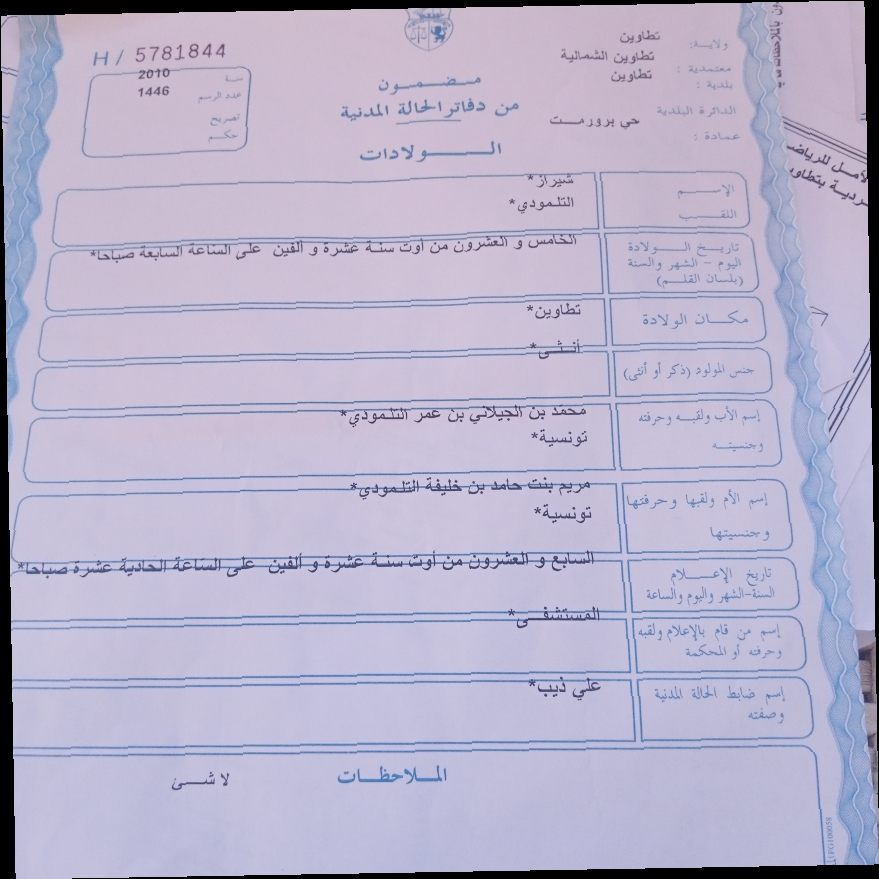 H / 5781844
سنة 2010
عدد الرسم 1446
تصريح
حكم
ولاية: تطاوين
معتمدية : تطاوين الشمالية
بلدية : تطاوين
الدائرة البلدية
عمادة : حي برورمت
مضمون
من دفاتر الحالة المدنية
الولادات
الإسم شيراز*
اللقب التلمودي*
تاريخ الولادة
اليوم - الشهر والسنة
(بلسان القلم)
الخامس و العشرون من أوت سنة عشرة و ألفين على الساعة السابعة صباحا*
مكان الولادة تطاوين*
جنس المولود (ذكر أو أنثى) أنثى*
إسم الأب ولقبه وحرفته
وجنسيته
محمد بن الجيلاني بن عمر التلمودي*
تونسية*
إسم الأم ولقبها وحرفتها
وجنسيتها
مريم بنت حامد بن خليفة التلمودي*
تونسية*
تاريخ الإعلام
السنة-الشهر واليوم والساعة
السابع و العشرون من أوت سنة عشرة و ألفين على الساعة الحادية عشرة صباحا*
إسم من قام بالإعلام ولقبه
وحرفته أو المحكمة
المستشفى*
إسم ضابط الحالة المدنية
وصفته
علي ذيب*
الملاحظات
لا شئ